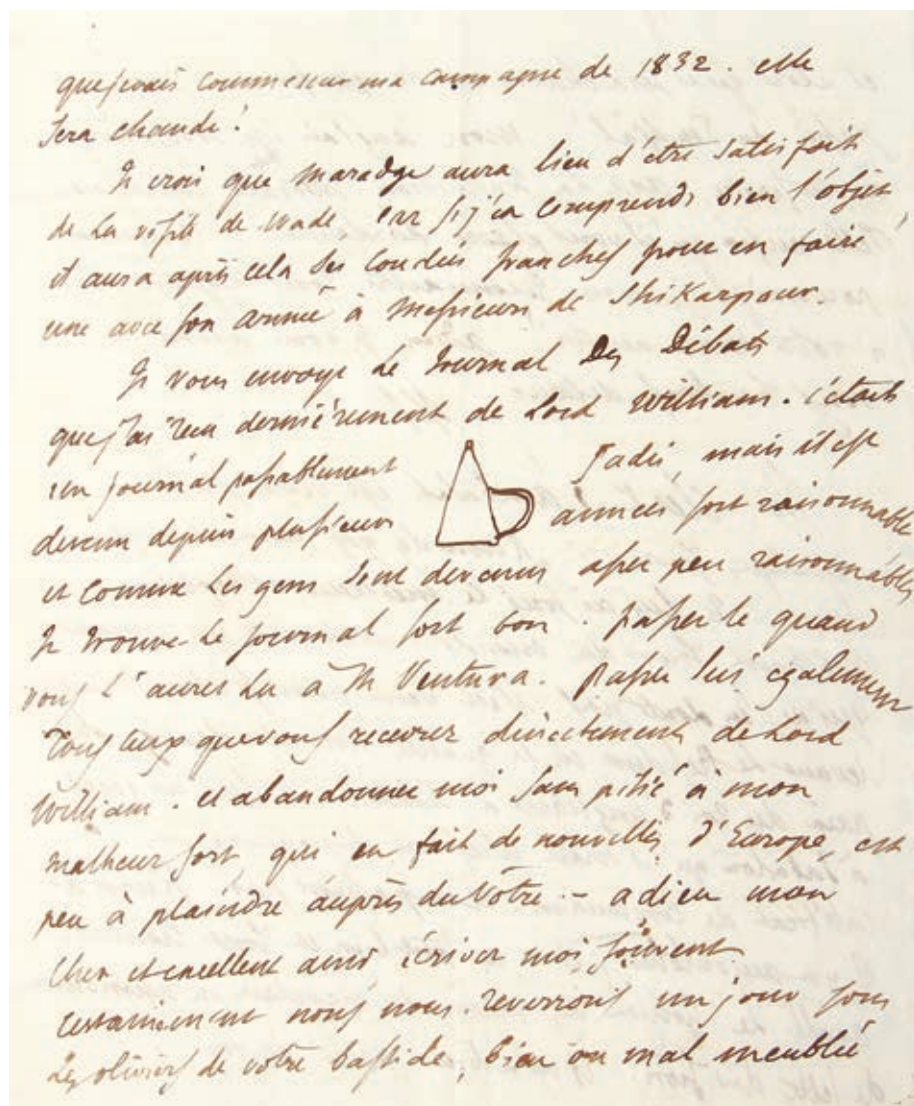 que je vais commencer ma campagne de 1832. elle
sera chaude!
Je crois que maradge aura lieu d'être satisfait
de la visite de Wade, car si j'en comprends bien l'objet
il aura après cela ses coudées franches pour en faire
une avec son armée à Messieurs de Shikarpour
Je vous envoye le Journal Des Débats
que j'ai reçu dernièrement de Lord William. c'était
un journal passablement Jadis, mais il est
devenu depuis plusieurs années fort raisonnable
et comme les gens sont devenus assez peu raisonnables
Je trouve le journal fort bon. passez le quand
vous l'aurez lu à M Ventura. passez lui egalement
tous ceux que vous recevrez directement de Lord
William. et abandonnez moi sans pitié à mon
malheur sort, qui en fait de nouvelles d'Europe, est
peu à plaindre auprès du Vôtre – adieu mon
cher et excellent ami écrivez moi souvent
certainement nous nous reverrons un jour sous
les oliviers de votre bastide, bien ou mal meublée